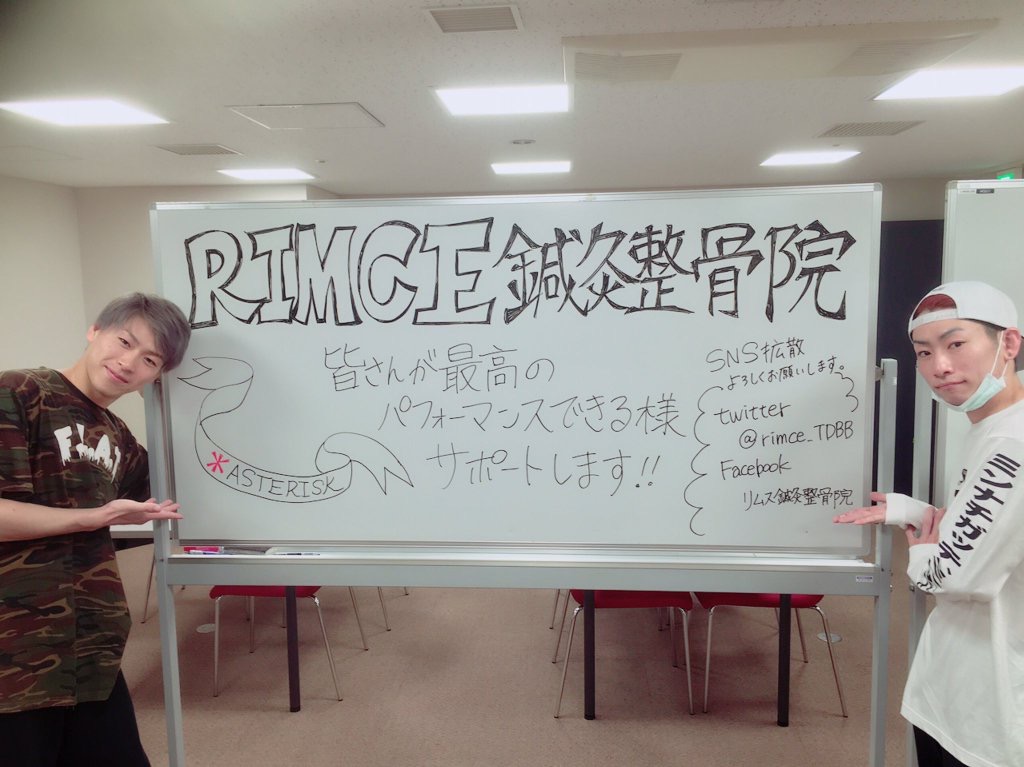 RIMCE鍼灸整骨院
皆さんが最高の
パフォーマンスできる様
サポートします!!
*ASTERISK
SNS拡散
よろしくお願いします。
twitter
@rimce_TDBB
Facebook
リムス鍼灸整骨院
ミンナチガッテ